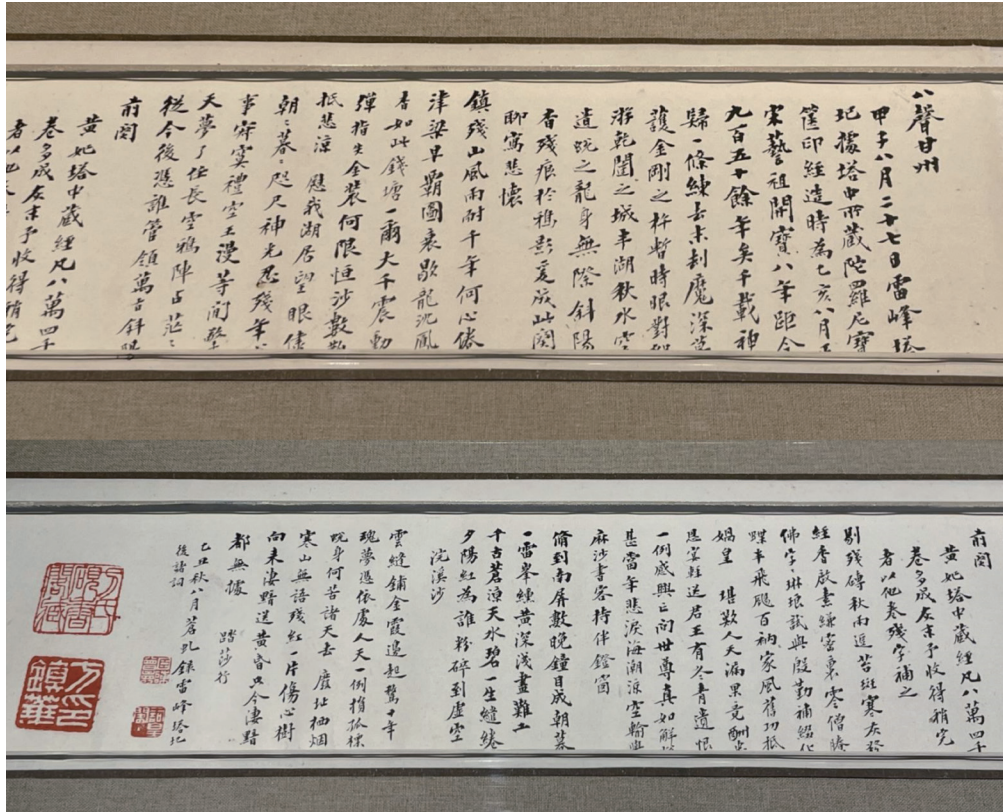 八聲甘州
甲子八月二十七日雷峰塔
圮據塔中所藏陀羅尼寶
篋印經造時為乙亥八月
宋藝祖開寶八年距今
九百五十餘年矣千載神
歸一條練去末劫魔深
護金剛之杵暫時眼對
游乾闥之城半湖秋水空
遺蛻之龍身無際斜陽
杳殘痕於鴉影爰成此闋
聊寫悲懷
鎮殘山風雨耐千年何心倦
津梁早霸圖衰歇龍沈鳳
杳如此錢塘一爾大千震動
彈指失金裝何限恒沙數
抵悲涼 慰我湖居望眼儘
朝朝暮暮咫尺神光忍殘年
事寂寞禮空王漫等閒擊
天夢了任長空鴉陣占茫茫
從今後憑誰管領萬古斜陽
前闋
黃妃塔中藏經凡八萬四千
卷多成灰末予收得稍完
者以他
前闋
黃妃塔中藏經凡八萬四千
卷多成灰末予收得稍完
者以他卷殘字補之
剔殘磚秋雨迸苔斑寒灰發
經香啟畫縑密裹零僧
佛字琳琅試與殷勤補紹
蝶半飛颺百衲家風舊功抵
媧皇 堪歎人天漏果竟酬
恩室輕送君王有冬青遺恨
一例感興亡問世尊真如解
甚當年悲淚海潮涼空輸與
麻沙書客持伴鐙窗
脩到南屏數晚鐘目成朝暮
一雷峯纁黃深淺畫難工
千古蒼涼天水碧一生繾綣
夕陽紅為誰粉碎到虛空
浣溪沙
雲縫鋪金霞邊起鶩千年
瑰夢憑依處人天一例損孤標
蛻身何苦諸天去 廢址柚烟
寒山無語殘紅一片傷心樹
向來淒黯送黃昏只今淒黯
都無據 踏莎行
乙丑秋八月茗孔錄雷峰塔圮
後諸詞